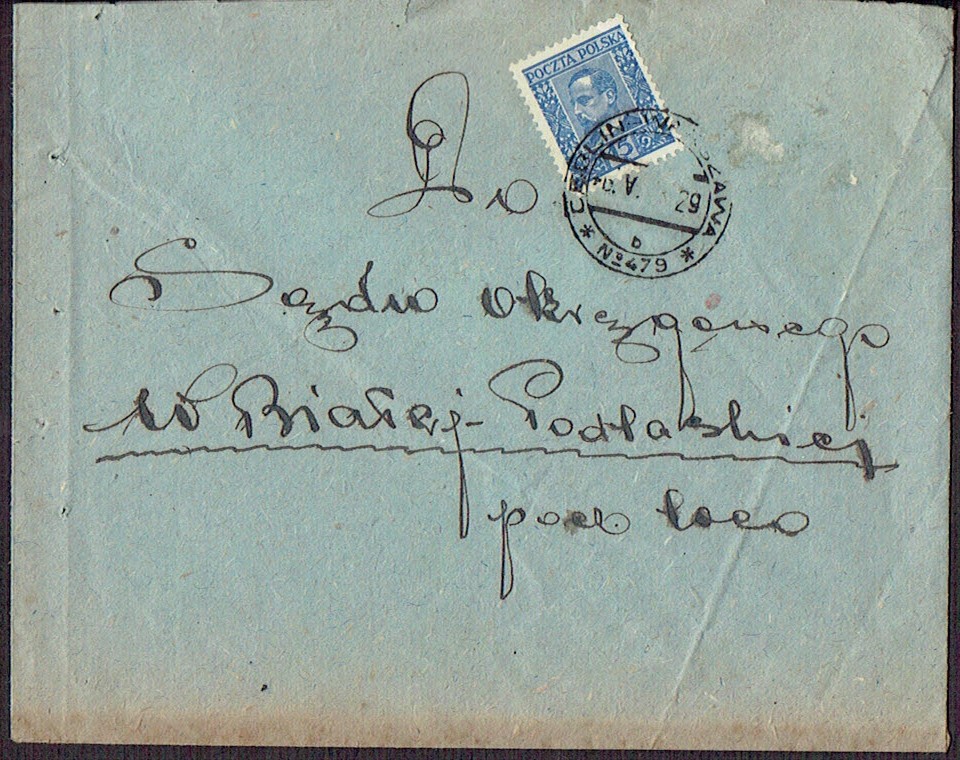 POCZTA POLSKA
15
29
* Nº 479 *
b
Do
Sądu okręgowego
w Białej-Podlaskiej
pocz. loco